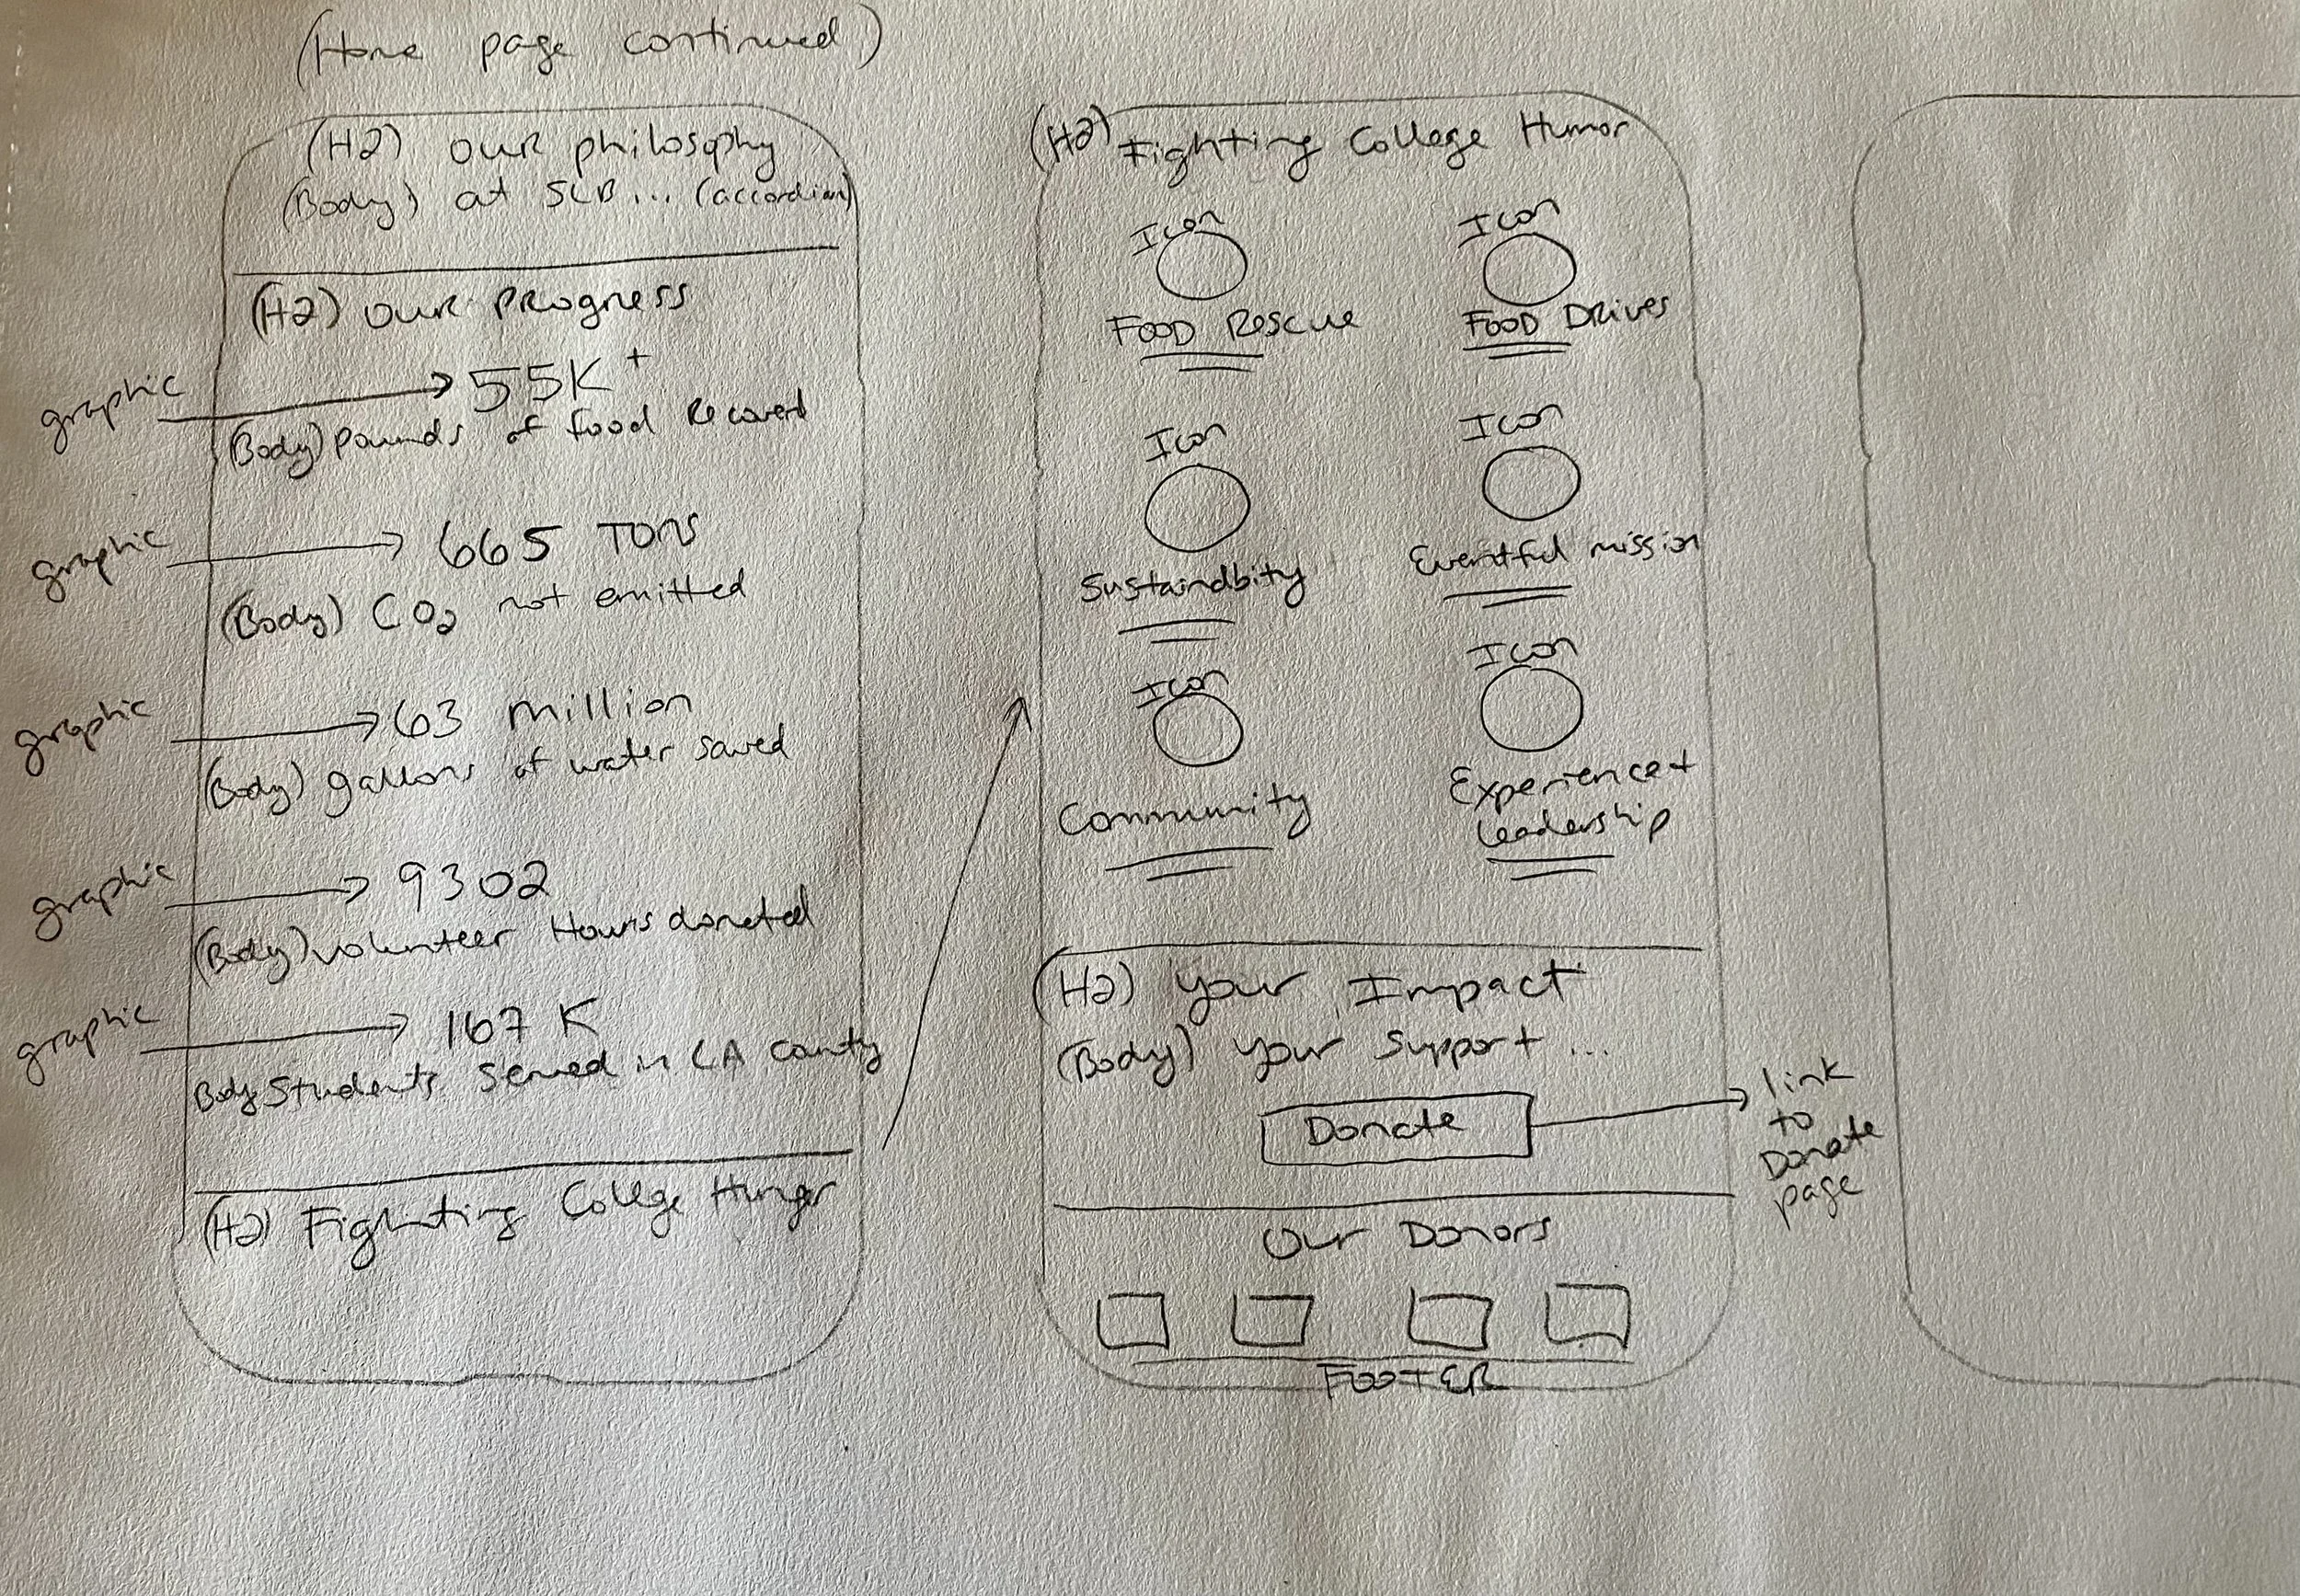 (Home page continued)
(H2) our philosophy
(Body) at SLB... (accordian)
(H2) our progress
graphic
55K+
(Body) pounds of food Recovered
graphic
665 Tons
(Body) CO2 not emitted
graphic
63 million
(Body) gallons of water saved
graphic
9302
(Body) volunteer Hours donated
graphic
167 K
Body Students served in LA County
(H2) Fighting College Hunger
(H2) Fighting College Humor
Icon
Icon
FOOD Rescue
FOOD Drives
Icon
Icon
Sustaindbity
Eventful mission
Icon
Icon
Community
Experience +
Leadership
(H2) Your Impact
(Body) Your Support...
Donate
link
to
Donate
page
Our Donors
FOOTER